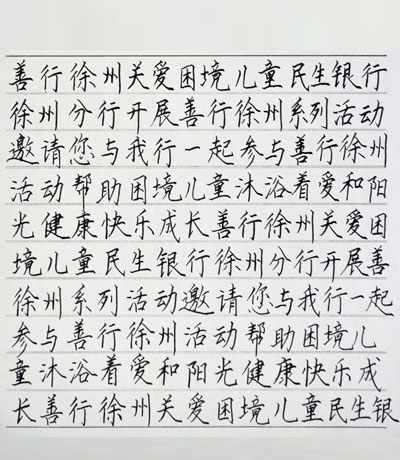 善行徐州关爱困境儿童民生银行
徐州分行开展善行徐州系列活动
邀请您与我行一起参与善行徐州
活动帮助困境儿童沐浴着爱和阳
光健康快乐成长善行徐州关爱困
境儿童民生银行徐州分行开展善
徐州系列活动邀请您与我行一起
参与善行徐州活动帮助困境儿
童沐浴着爱和阳光健康快乐成
长善行徐州关爱困境儿童民生银